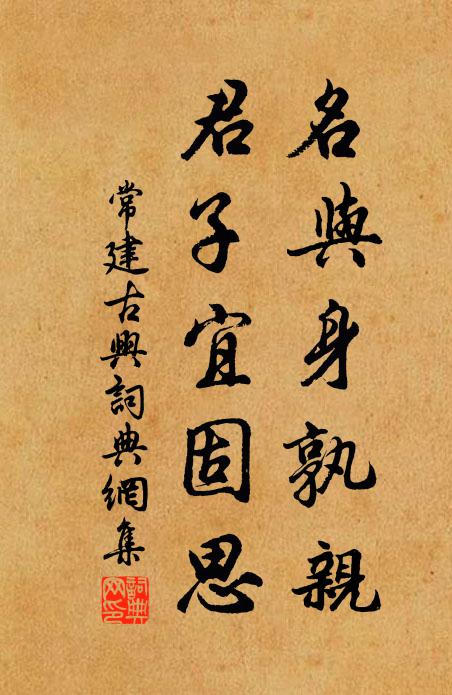 名與身孰親
君子宜固思
常建古興詞典網集
詞典
网印